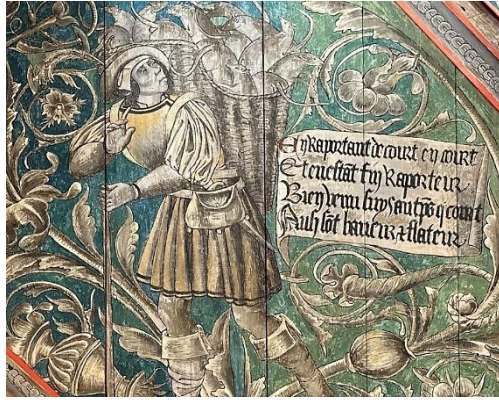 En Raportant de court en court
Et en estat suy Raporteur
Bien venu suys au tp̄s q̄ court
Ausi sōt baveur & flateur